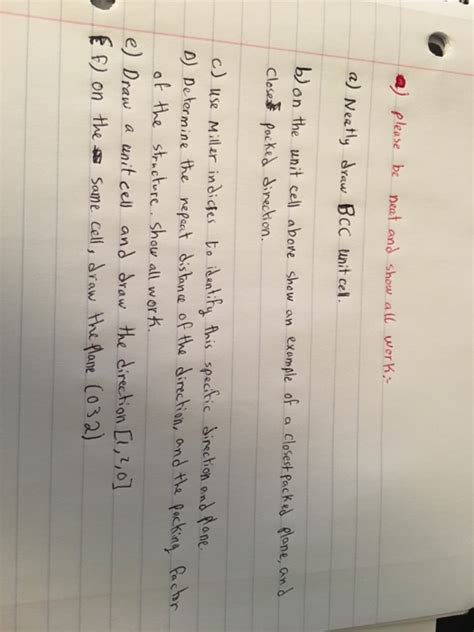 a) please be neat and show all work:-
a) Neatly draw BCC unit cell.
b) on the unit cell above show an example of a closest packed plane, and
close packed direction.
c) use Miller indictes to identify this specific direction and plane.
D) Determine the repeat distance of the direction, and the packing factor
of the structure. show all work.
e) Draw a unit cell and draw the direction [1,2,0]
f) on the same cell, draw the plane (032)